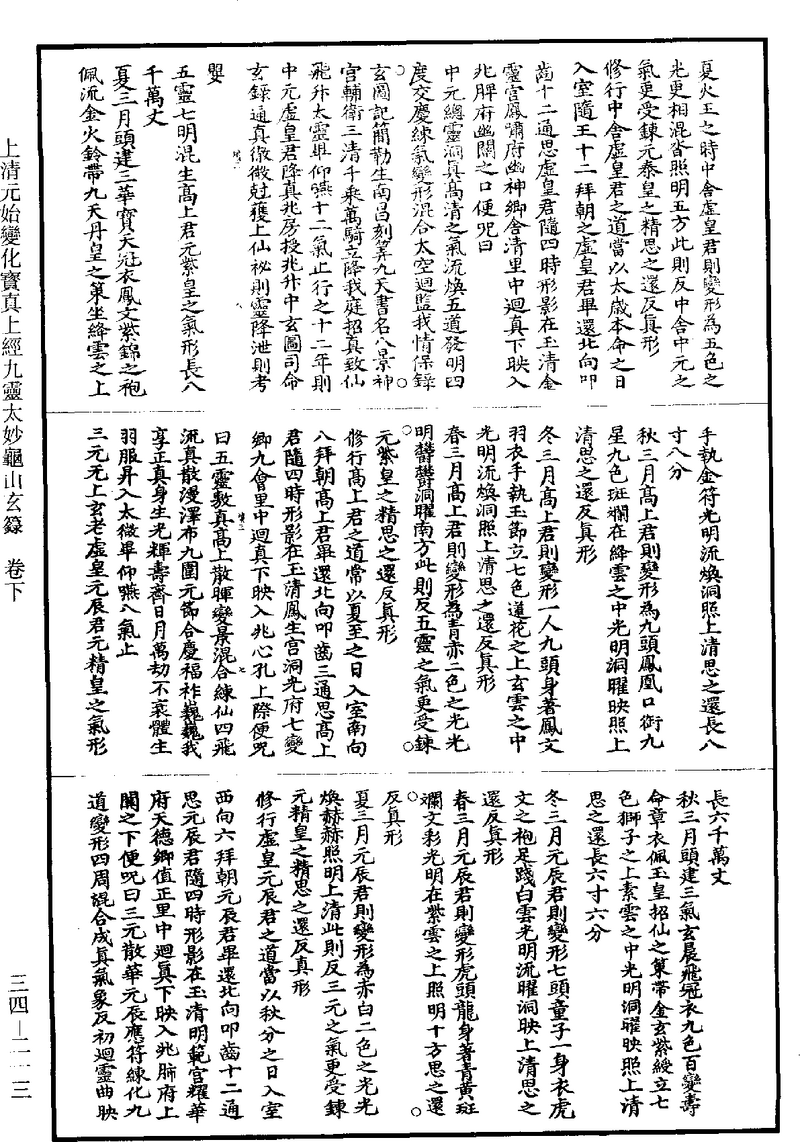 夏火王之時中舍虛皇君則變形為五色之
光更相混沓照明五方此則反中舍中元之
氣更受鍊元泰皇之精思之還反真形
修行中舍虛皇君之道當以太歲本命之日
入室隨王十二拜朝之虛皇君畢還北向叩
齒十二通思虛皇君隨四時形影在玉清金
靈宮鳳嘯府幽神鄉舍清里中迴真下映入
兆脾府幽關之口便咒曰
中元總靈洞真高清之氣流煥五道發明四
度交慶練氣變形混合太空迴監我情保錄
玄圖記簡勒生南昌刻筭九天書名八景神
宮輔衛三清千乘萬騎立降我庭招真致仙
飛升太靈畢仰嚥十二氣止行之十二年則
中元虛皇君降真兆房授兆升中玄圖司命
玄錄通真徹微尅獲上仙祕則靈降泄則考
嬰
五靈七明混生高上君元紫皇之氣形長八
千萬丈
夏三月頭建三華寶天冠衣鳳文紫錦之袍
佩流金火鈴帶九天丹皇之策坐絳雲之上
手執金符光明流煥洞照上清思之還長八
寸八分
秋三月高上君則變形為九頭鳳凰口銜九
星九色斑斕在絳雲之中光明洞曜映照上
清思之還反真形
冬三月高上君則變形一人九頭身著鳳文
羽衣手執玉節立七色蓮花之上玄雲之中
光明流煥洞照上清思之還反真形
春三月高上君則變形為青赤二色之光光
明欝欝洞曜南方此則反五靈之氣更受鍊
元紫皇之精思之還反真形
修行高上君之道常以夏至之日入室南向
八拜朝高上君畢還北向叩齒三通思高上
君隨四時形影在玉清鳳生宮洞光府七變
鄉九會里中迴真下映入兆心孔上際便咒
曰五靈敷真高上散暉變景混合練仙四飛
流真散漫澤布九圍元節合慶福祚巍巍我
享正真身生光輝壽齊日月萬劫不衰體生
羽服昇入太微畢仰嚥八氣止
三元无上玄老虛皇元辰君元精皇之氣形
長六千萬丈
秋三月頭建三氣玄晨飛冠衣九色百變壽
命章衣佩玉皇招仙之策帶金玄紫綬立七
色獅子之上素雲之中光明洞曜映照上清
思之還長六寸六分
冬三月元辰君則變形七頭童子一身衣虎
文之袍足踐白雲光明流曜洞映上清思之
還反真形
春三月元辰君則變形虎頭龍身著青黃斑
斕文彩光明在紫雲之上照明十方思之還
反真形
夏三月元辰君則變形為赤白二色之光光
煥赫赫照明上清此則反三元之氣更受鍊
元精皇之精思之還反真形
修行虛皇元辰君之道當以秋分之日入室
西向六拜朝元辰君畢還北向叩齒十二通
思元辰君隨四時形影在玉清明範宮耀華
府天德鄉值正里中迴真下映入兆肺府上
關之下便咒曰三元散華元辰應符練化九
道變形四周混合成真氣象反初迴靈曲映
上清元始變化寶真上經九靈太妙龜山玄籙　卷下
三四—二一三